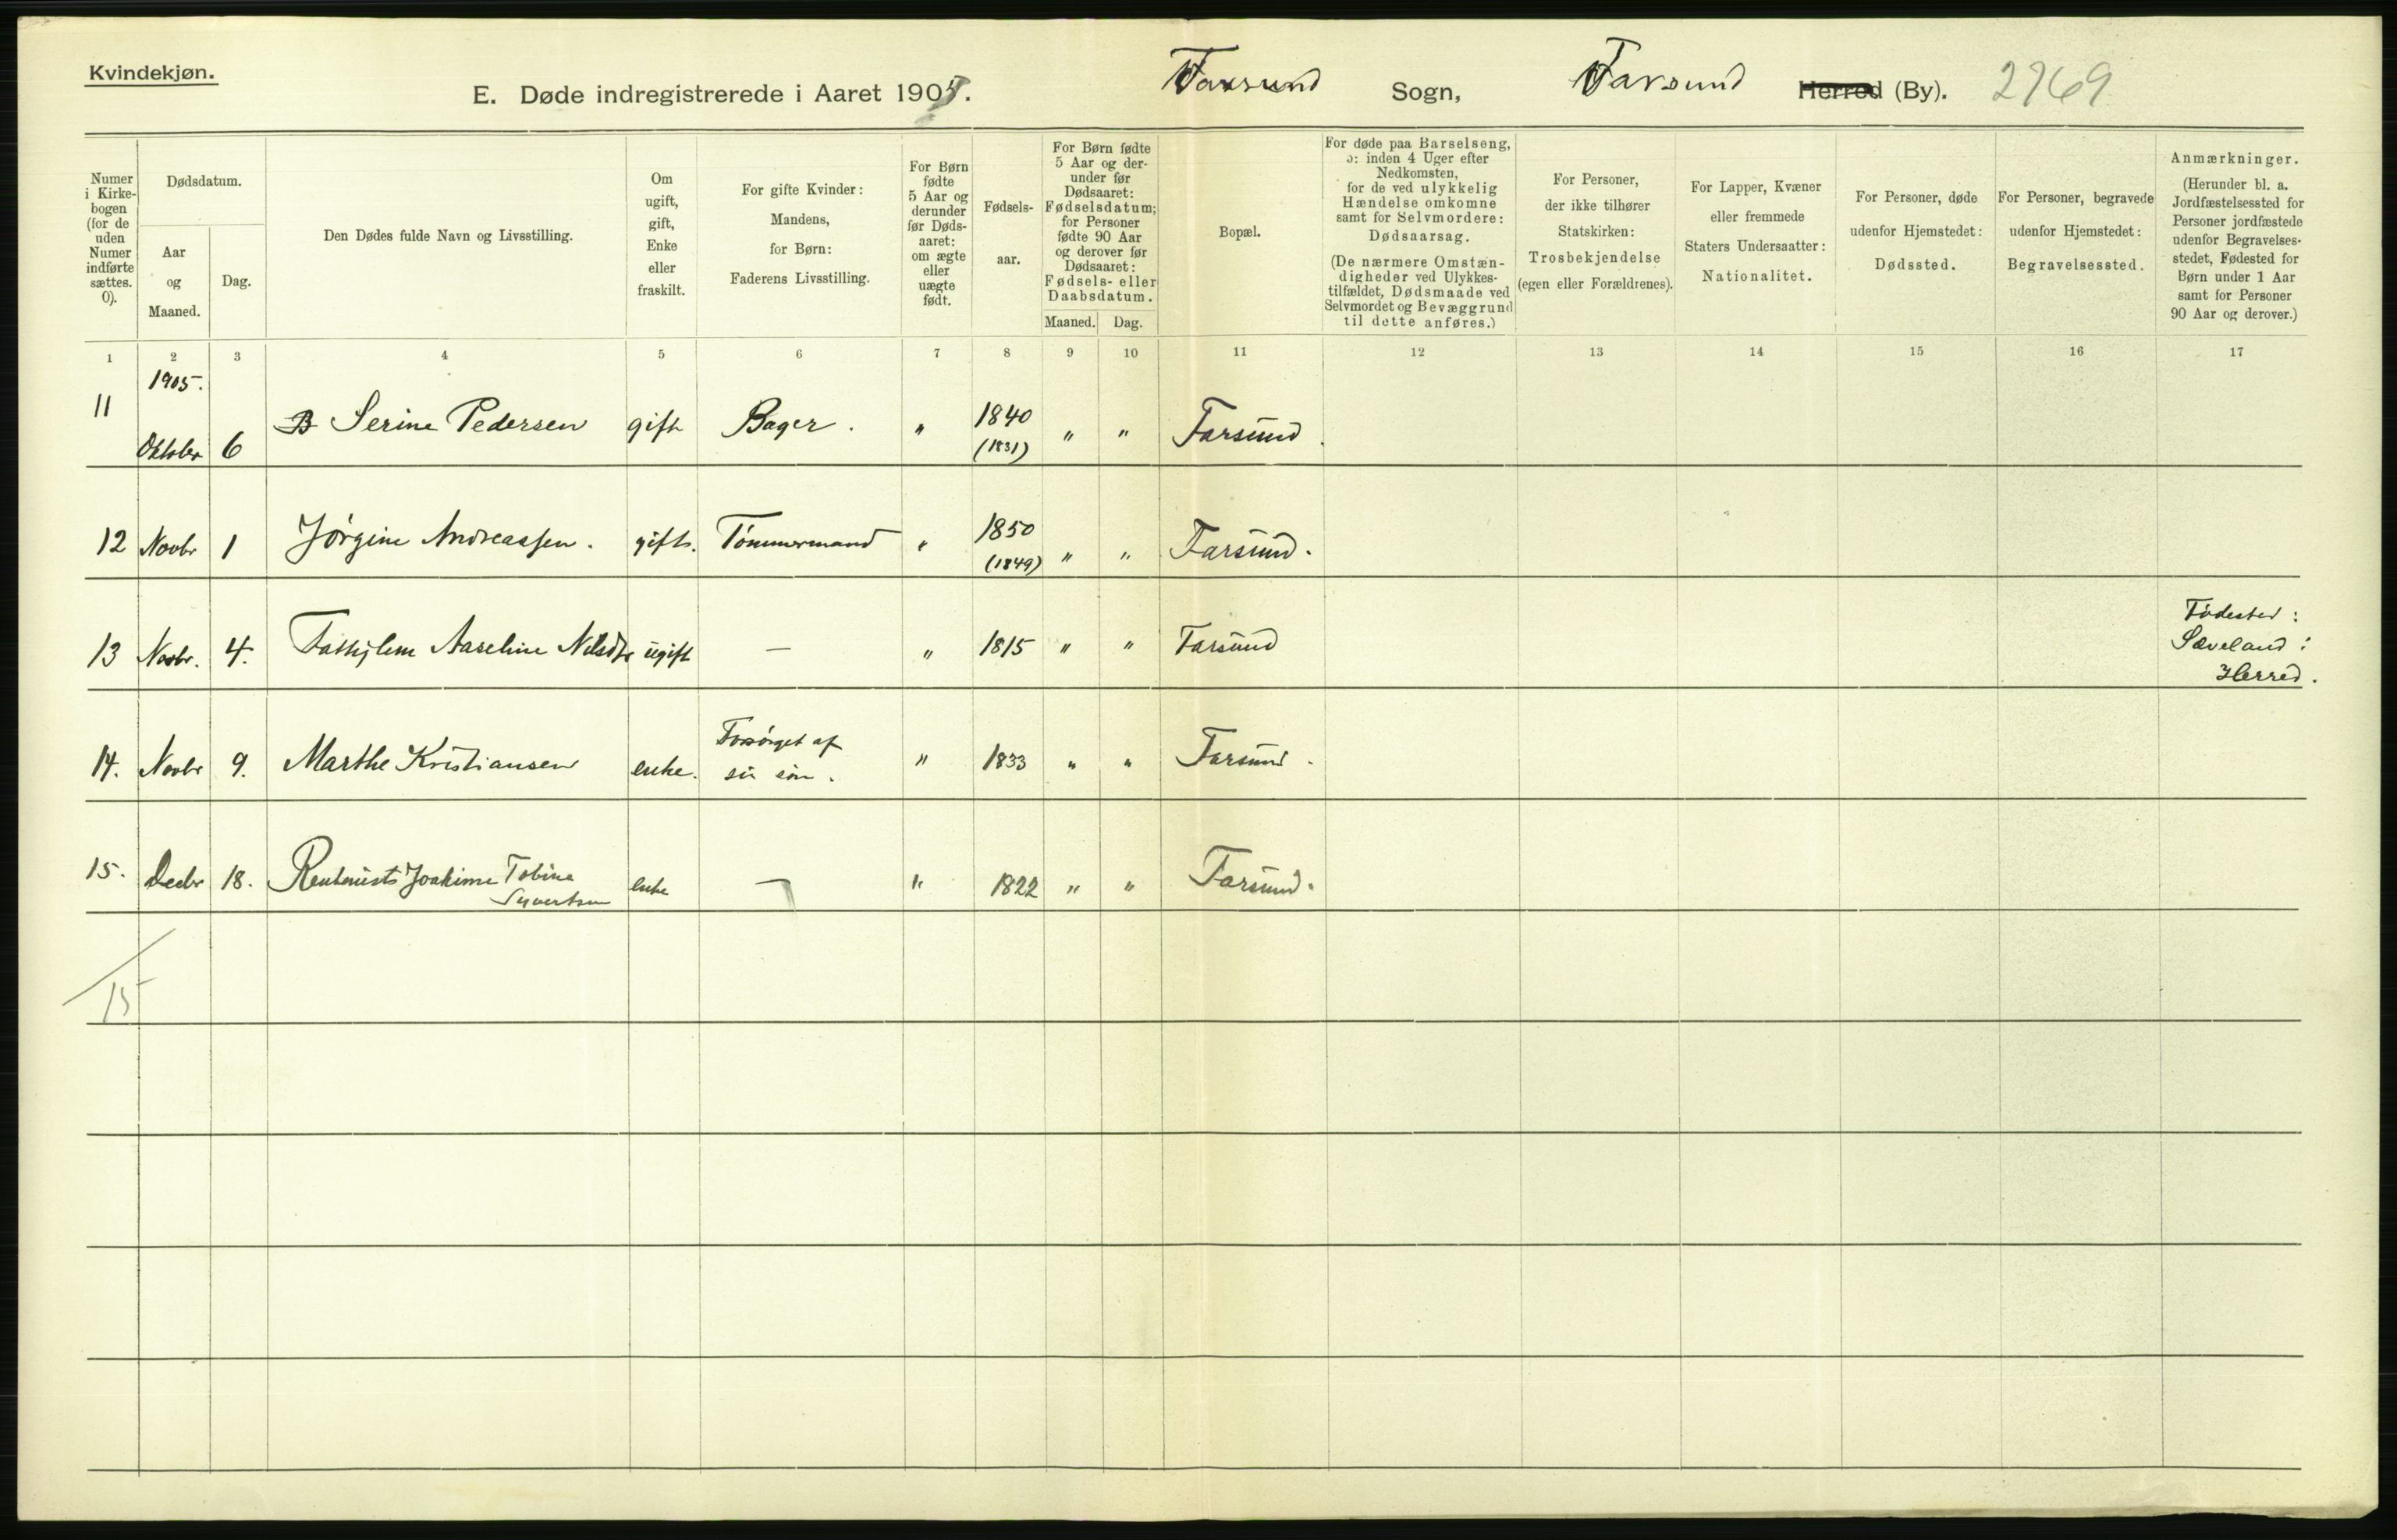 Kvindekjøn.
E. Døde indregistrerede i Aaret 1905.
Farsund Sogn, Farsund Herred (By). 2769
Numer i Kirkebogen (for de uden Numer indførte sættes. 0).
Dødsdatum.
Aar og Maaned.
Dag.
Den Dødes fulde Navn og Livsstilling.
Om ugift, gift, Enke eller fraskilt.
For gifte Kvinder: Mandens, for Børn: Faderens Livsstilling.
For Børn fødte 5 Aar og derunder før Dødsaaret: om ægte eller uægte født.
Fødselsaar.
For Børn fødte 5 Aar og derunder før Dødsaaret: Fødselsdatum; for Personer fødte 90 Aar og derover før Dødsaaret: Fødsels- eller Daabsdatum.
Maaned. Dag.
Bopæl.
For døde paa Barselseng, ɔ: inden 4 Uger efter Nedkomsten, for de ved ulykkelig Hændelse omkomne samt for Selvmordere: Dødsaarsag.
(De nærmere Omstændigheder ved Ulykkestilfældet, Dødsmaade ved Selvmordet og Bevæggrund til dette anføres.)
For Personer, der ikke tilhører Statskirken: Trosbekjendelse (egen eller Forældrenes).
For Lapper, Kvæner eller fremmede Staters Undersaatter: Nationalitet.
For Personer, døde udenfor Hjemstedet: Dødssted.
For Personer, begravede udenfor Hjemstedet: Begravelsessted.
Anmærkninger.
(Herunder bl. a. Jordfæstelsessted for Personer jordfæstede udenfor Begravelsesstedet, Fødested for Børn under 1 Aar samt for Personer 90 Aar og derover.)
1 2 3 4 5 6 7 8 9 10 11 12 13 14 15 16 17
1905.
11 Oktober 6 B Serine Pedersen gift Bager. " 1840 (1831) " " Farsund.
12 Novbr 1 Jörgine Andreassen. gift. Tömmermand " 1850 (1849) " " Farsund.
13 Novbr. 4. Aaseline Nilsdtr ugift — " 1815 " " Farsund Födested:
Sæveland i
Herred.
14. Novbr 9. Marthe Kristiansen enke. Forsörget af
sin sön. " 1833 " " Farsund.
15. Decbr 18. Joakime Tobine
Syvertsen enke — " 1822 " " Farsund.
15